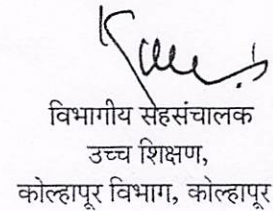 विभागीय सहसंचालक
उच्च शिक्षण,
कोल्हापूर विभाग, कोल्हापूर